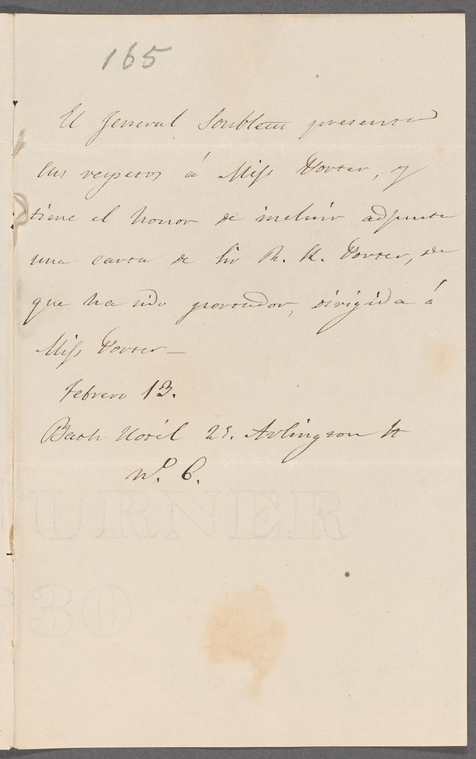 165
El General Soublette presenta
sus respetos á Miss Porter, y
tiene el honor de incluir adjunta
una carta de Sir R. K. Porter, de
que ha sido portador, dirigida á
Miss Porter—
Febrero 13.
Bath Hotel 25. Arlington St
Nº 6.
TURNER
830